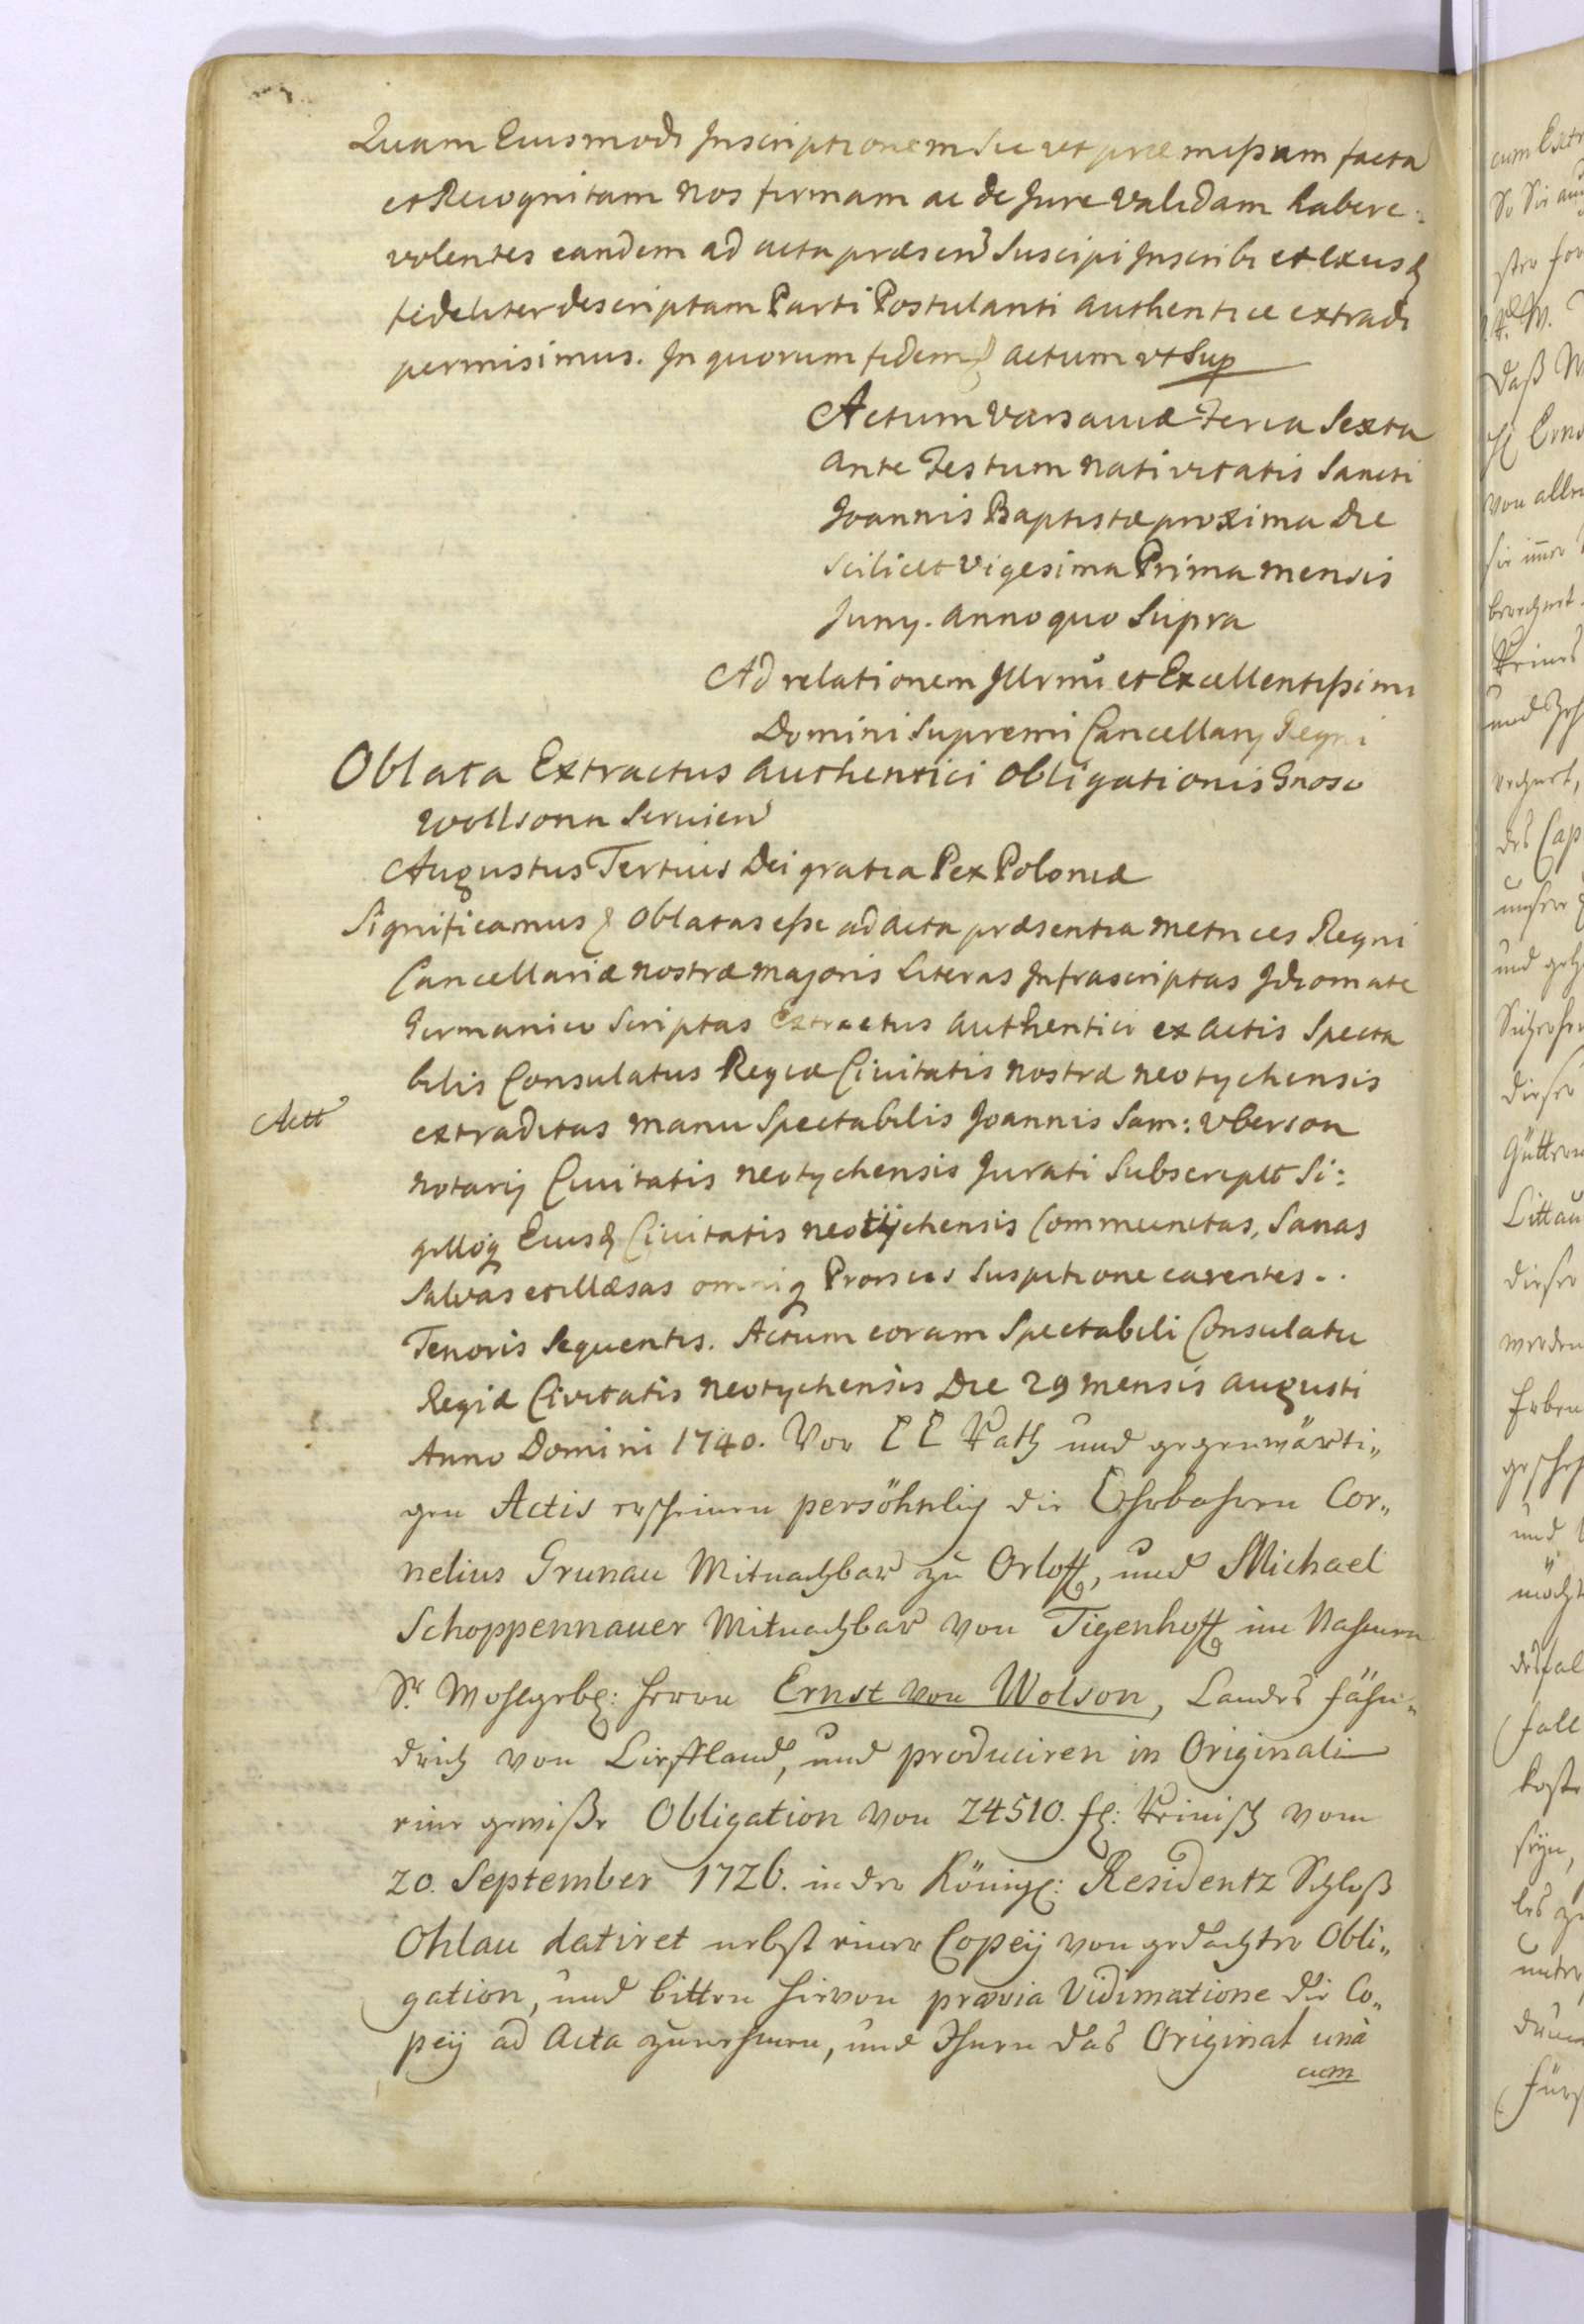 Quam Eiusmodi Inscriptionem sic ut præmissam facta
et Recognitam nos firmam ac de Jure validam habere
volentes eandem ad acta præsen Suscipi Inscribi et exusq
fideliter descriptam Parti Postulanti authentice extradi
permisimus. In quorum fidem & actum ut Sup
Actum Varsaviæ Feria Sexta
ante Festum nativitatis Sancti
Joannis Baptistæ proxima die
scilicet vigesima Prima mensis
Juny. anno quo Supra
Ad relationem Illrmi et Excellentissimi
Domini Supremi Cancellarij Regni
Oblata Extractus authentici obligationis Gnoso
Wollsonn Servien
Augustus Tertius Dei gratia Rex Poloniæ
Significamus & oblatas esse ad acta præsentia metrices Regni
Cancellariæ nostræ majoris Literas Infrascriptas Idiomate
Germanico scriptas Extractus authentici ex actis Specta
bilis Consulatus Regiæ Civitatis nostræ neotychensis
Actt
extraditas manu Spectabilis Joannis Sam: Uberson
notarij Civitatis neotychensis Jurati Subscript Si:
gilloq Eiusq Civitatis neotÿchensis Communitas, Sanas
Salvas et illæsas omniq Prorsus Suspitione carentes..
Tenoris Sequentis. Actum coram Spectabili Consulatu
Regiæ Civitatis neotychensis Die 29 mensis augusti
Anno Domini 1740. Vor E E Rath und gegenwärti„
gen Actis erscheinen persöhnlich die Ehrbahren Cor„
nelius Grunau Mitnachbar zu Orloff, und Michael
Schoppennauer Mitnachbar von Tigenhoff im Nahmen
Sr. Wohlgebl: Herrn Ernst von Wolson, Landes fähn„
drich von Liefland, und produciren in Originali
eine gewiße Obligation von 24510. fl: Reinisch vom
20. September 1726. in der Königl: Residentz Schloß
Ohlau datiret nebst einer Copeÿ von gedachter Obli„
gation, und bitten hievon prævia Vidimatione die Co„
peÿ ad Acta zunehmen, und Ihnen das Original unà
cum